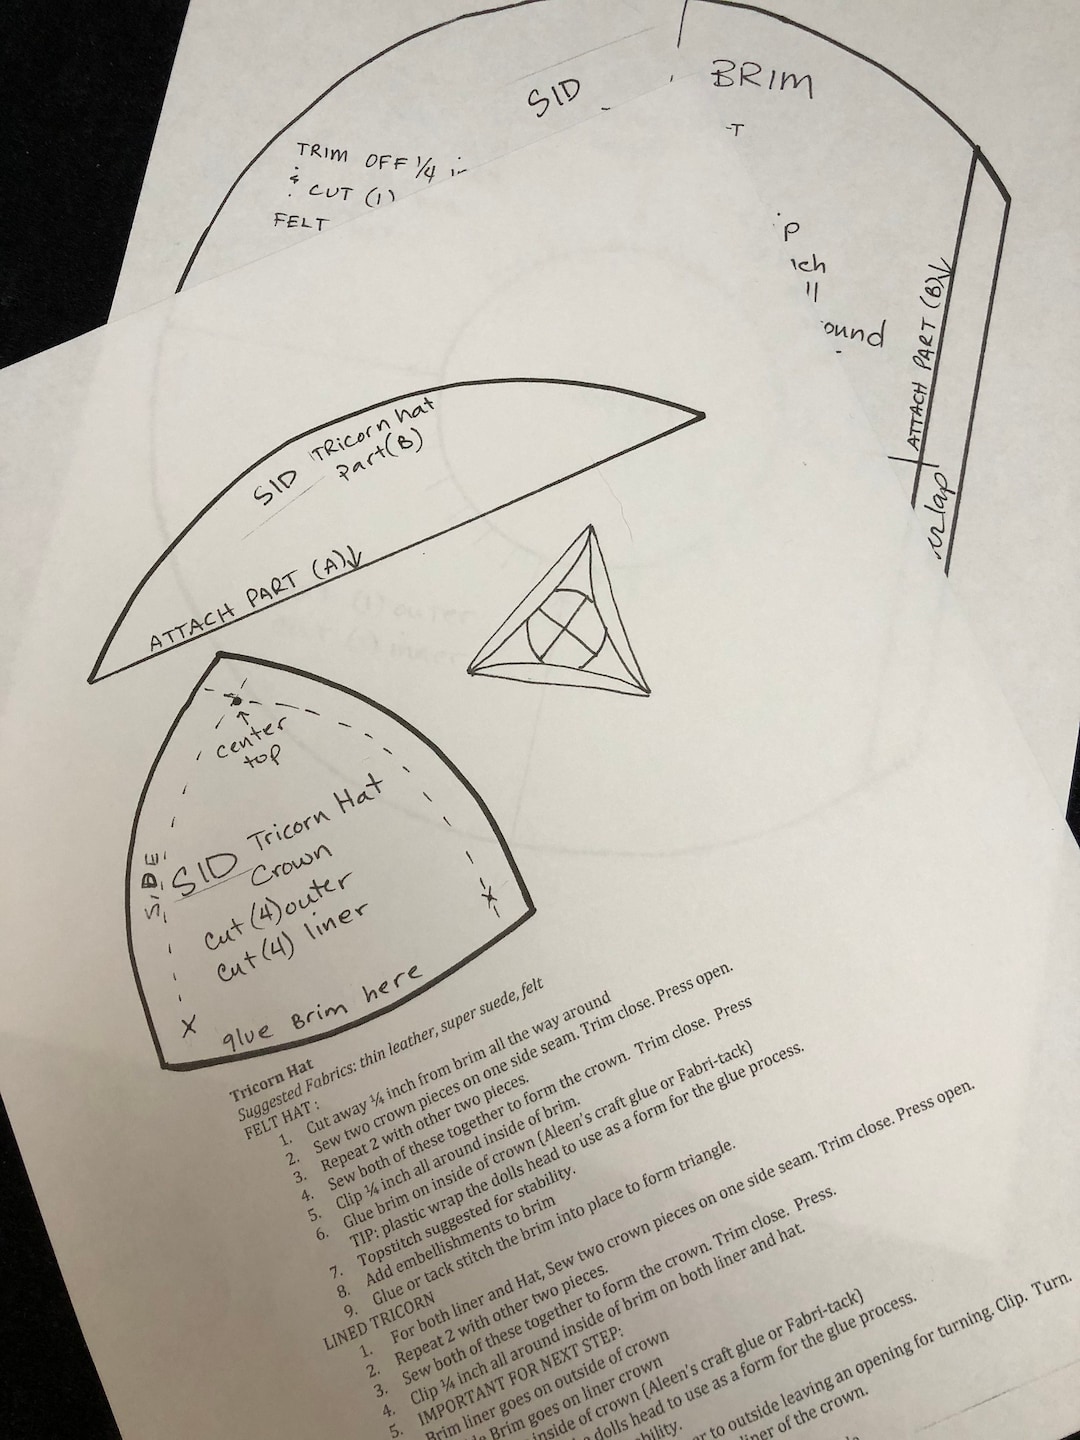 SID
BRIM
TRIM OFF 1/4 in
& CUT (1)
FELT
ATTACH PART (B)
SID TRicorn hat
part(B)
ATTACH PART (A)
center
top
SIDE
SID Tricorn Hat
Crown
cut (4) outer
cut (4) liner
glue Brim here
Tricorn Hat
Suggested Fabrics: thin leather, super suede, felt
FELT HAT :
1. Cut away ¼ inch from brim all the way around
2. Sew two crown pieces on one side seam. Trim close. Press open.
3. Repeat 2 with other two pieces.
4. Sew both of these together to form the crown. Trim close. Press
5. Clip ¼ inch all around inside of brim.
6. Glue brim on inside of crown (Aleen's craft glue or Fabri-tack)
TIP: plastic wrap the dolls head to use as a form for the glue process.
7. Topstitch suggested for stability.
8. Add embellishments to brim
9. Glue or tack stitch the brim into place to form triangle.
LINED TRICORN
1. For both liner and Hat, Sew two crown pieces on one side seam. Trim close. Press open.
2. Repeat 2 with other two pieces.
3. Sew both of these together to form the crown. Trim close. Press.
4. Clip ¼ inch all around inside of brim on both liner and hat.
5. IMPORTANT FOR NEXT STEP:
Brim liner goes on outside of crown
Brim goes on liner crown
inside of crown (Aleen's craft glue or Fabri-tack)
dolls head to use as a form for the glue process.
to outside leaving an opening for turning. Clip. Turn.
of the crown.